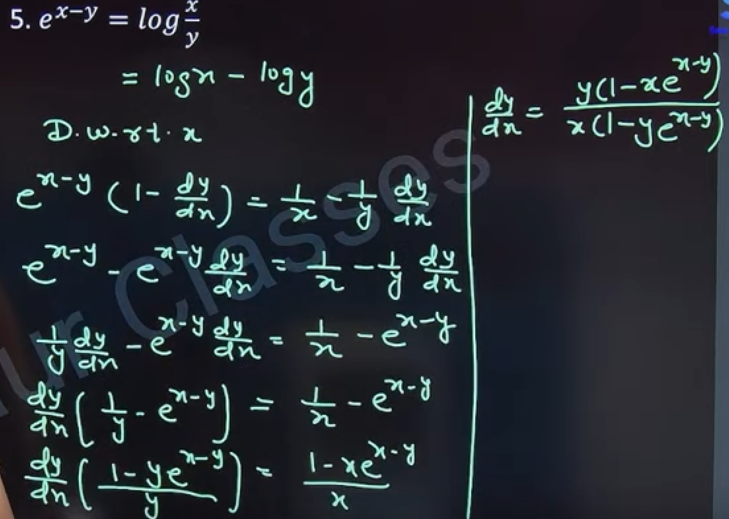 5. e^{x-y} = log x/y
= log x - log y
D.w.r.t. x
e^{x-y} (1 - dy/dx) = 1/x - 1/y dy/dx
e^{x-y} - e^{x-y} dy/dx = 1/x - 1/y dy/dx
1/y dy/dx - e^{x-y} dy/dx = 1/x - e^{x-y}
dy/dx (1/y - e^{x-y}) = 1/x - e^{x-y}
dy/dx ((1 - ye^{x-y})/y) = (1 - xe^{x-y})/x
dy/dx = y(1 - xe^{x-y})/x(1 - ye^{x-y})
ur Classes